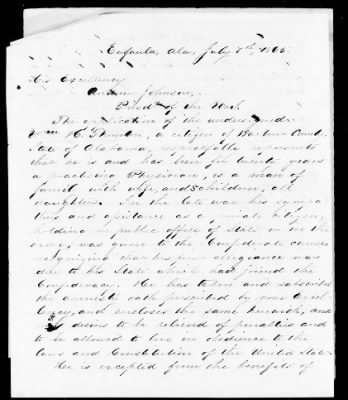 Eufaula, Ala, July 7th, 1865.
His Excellency
Andrew Johnson,
Presdt of the U.S.
The application of the undersigned
Wm H. a citizen of Barbour County
State of Alabama, respectfully represents
that he is and has been for twenty years
a practicing Physician, is a man of
family with wife, and 5 children, all
daughters. In the late war his sympa
thies and assistance as a private citizen,
holding no public office of State or in the
army, was given to the Confederate cause,
recognizing that his first allegiance was
due to his State which had joined the
Confederacy. He has taken and subscribed
the amnesty oath prescribed by your Excel
lency, and encloses the same herewith, and
desires to be relieved of penalties and to
be allowed to live in obedience to the
laws and Constitution of the United States.
He is excepted from the benefits of